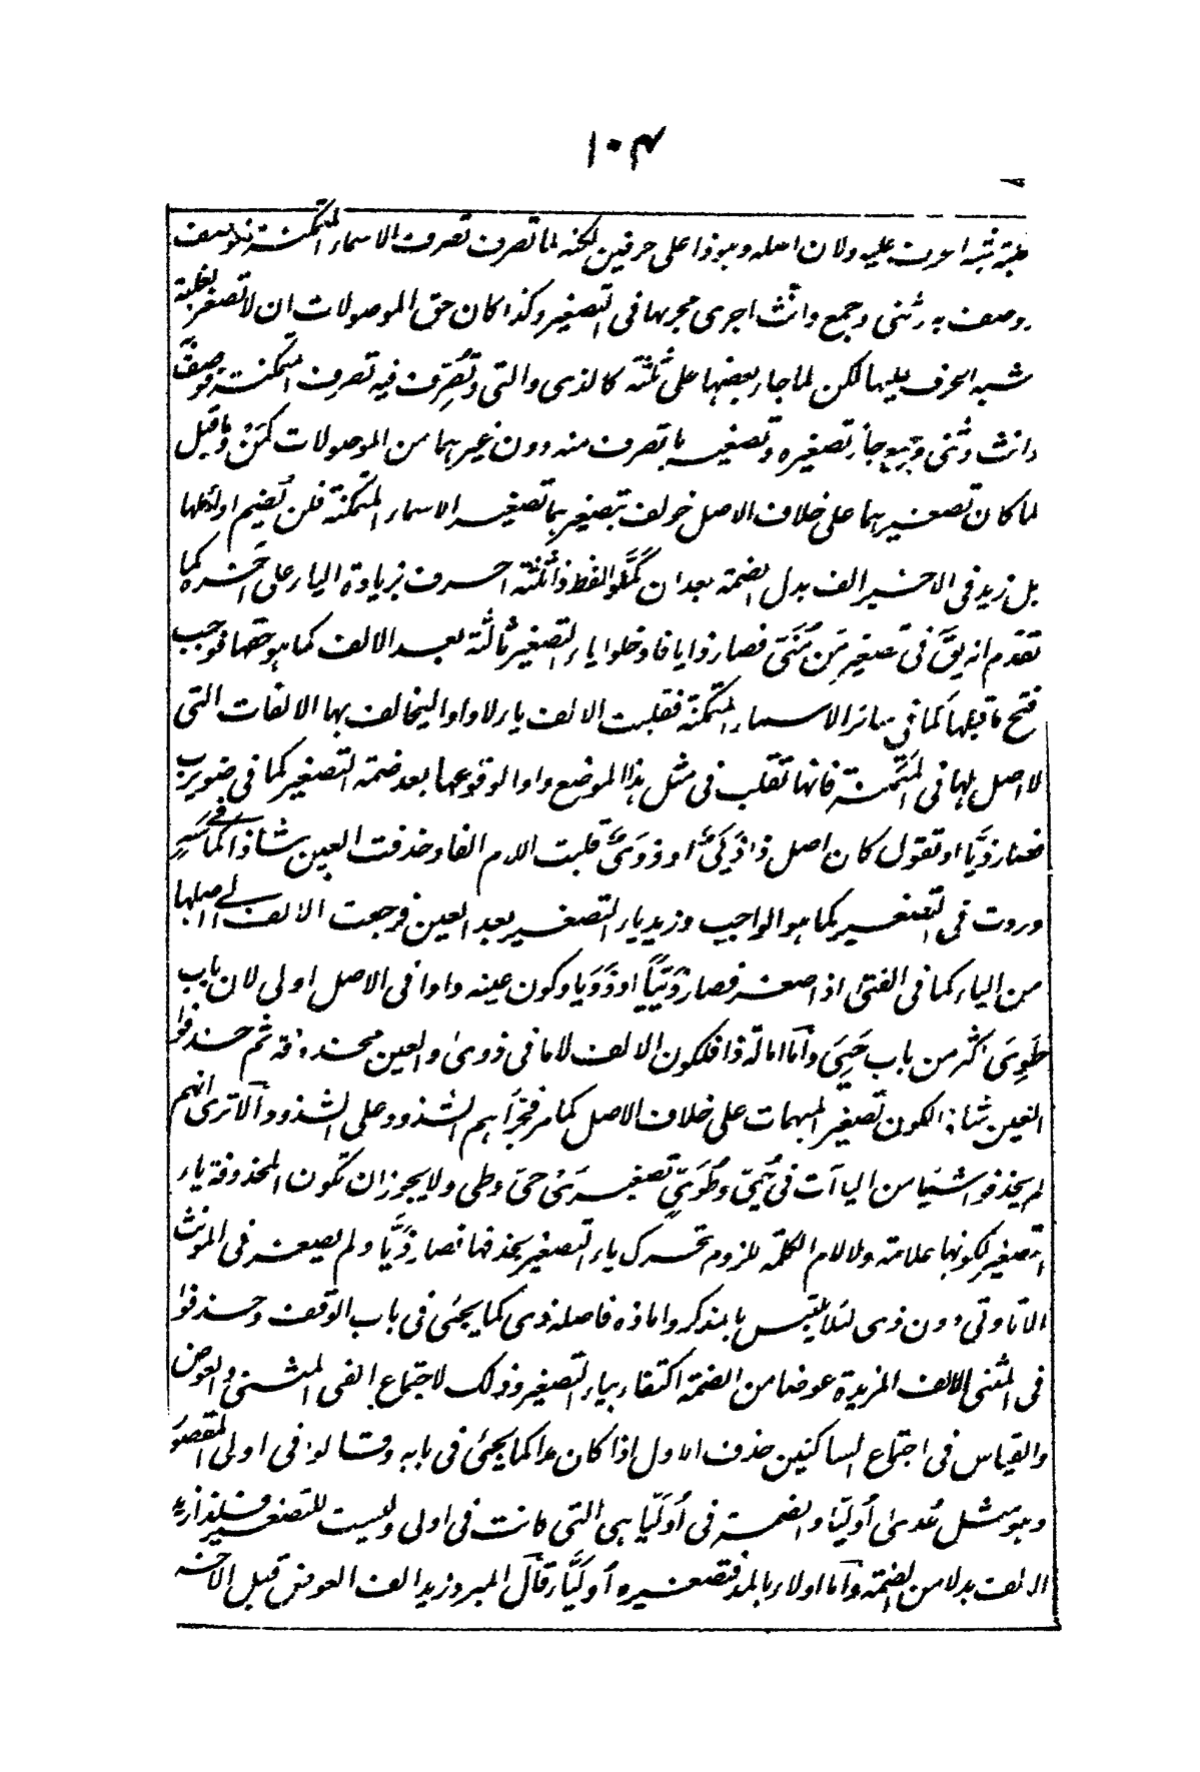 ١٠٤
غلبة شبه الحرف عليه ولان اصله وهو ذا على حرفين لكنه لما تصرف تصرف الاسماء المتمكنة فوصف
ووصف به وثنى وجمع وانث اجرى مجراها فى التصغير وكذا كان حق الموصولات ان لا تصغر لغلبة
شبه الحرف عليها لكن لما جاء بعضها على ثلثة كالذى والتى وتُصُرِّف فيه تصرف المتمكنة فوصف
وانث وثنى وجمع جاز تصغيره وتصغير ما تصرف منه دون غيرهما من الموصولات كمَنْ وما قيل
لما كان تصغيرهما على خلاف الاصل خولف بتصغيرهما تصغير الاسماء المتمكنة فلن تُضم اوائلها
بل زيد فى الاخير الف بدل الضمة بعد ان كمَّلوا لفظ ذا ثلثة احرف بزيادة الياء على اخره كما
تقدم انه يق فى تصغير مَن مُنَىّ فصار ذايا فادخلوا ياء التصغير ثالثة بعد الالف كما هو حقها فوجب
فتح ما قبلها كما فى سائر الاسماء المتمكنة فقلبت الالف ياء لا واوا ليخالف بها الالفات التى
لا اصل لها فى المتمكنة فانها تقلب فى مثل هذا الموضع واوا لوقوعها بعد ضمة التصغير كما فى ضويرب
فصار ذَيَّا او تقول كان اصل ذا ذَيَىٌ او ذَوَىٌ قلبت اللام الفا وحذفت العين شاذا كما فى سَهٍ
وردت فى التصغير كما هو الواجب وزيد ياء التصغير بعد العين فرجعت الالف الى اصلها
من الياء كما فى الفتى اذا صغر فصار ذَيَيَّا او ذَوَيَّا وكون عينه واوا فى الاصل اولى لان باب
طَوِىَ اكثر من باب حَيِىَ واما امالة ذا فلكون الالف لاما فى ذوى والعين محذوفة ثم حذفوا
العين شاذا لكون تصغير المبهمات على خلاف الاصل كما مر فجرأهم الشذوذ على الشذوذ الا ترى انهم
لم يحذفوا شيئا من الياآت فى حُيَىّ وطُوَىّ تصغيرَىْ حىّ وطى ولا يجوز ان تكون المحذوفة ياء
التصغير لكونها علامة ولا لام الكلمة للزوم تحرك ياء التصغير بحذفها فصار ذَيَّا ولم يصغر فى المونث
الا تا وتى دون ذى لئلا يلتبس بالمذكر واما ذه فاصله ذى كما يجئ فى باب الوقف وحذفوا
فى المثنى الالف المزيدة عوضا من الضمة اكتفاء بياء التصغير وذلك لاجتماع الفى المثنى والعوض
والقياس فى اجتماع الساكنين حذف الاول اذا كان مدا كما يجئ فى بابه وقالوا فى اولى المقصور
وهو مثل هُدى اُوليّا والضمة فى اُولَيّا هى التى كانت فى اولى وليست للتصغير فلذا زيد
الالف بدلا من الضمة واما اولاء بالمد فتصغيره اُولَيَّاء قال المبرد زيد الف العوض قبل الاخر